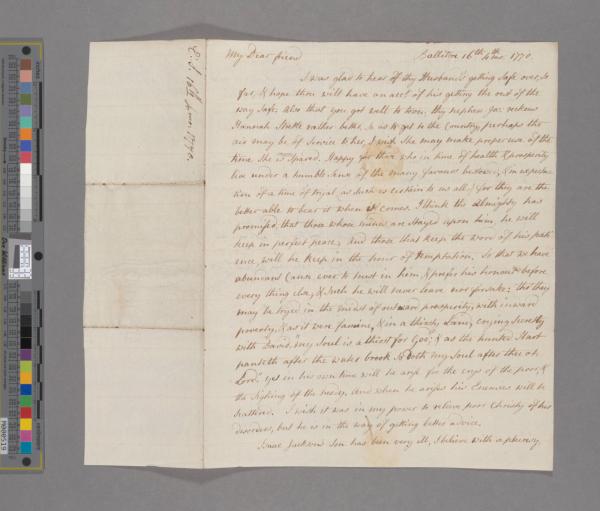 E. S. 16th 4 mo: 1770.
My Dear friend Ballitore 16th 4th mo: 1770
I was glad to hear of thy Husband's getting safe over, so
far, & hope thou will have an acct of his getting the rest of the
way safe, also that you got well to town, thy nephew Jas: reckons
Hannah rather better, so as to get to the Country, perhaps the
air may be of service to her, I wish She may make proper use of the
time She is Spared. Happy for those who in time of health & prosperity
live under a humble Sense of the many favours bestow'd, (& in expecta-
tion of a time of tryal, as such is certain to us all) for they are the
better able to bear it when it comes. I think the Almighty has
promised that those whose minds are Stayed upon him, he will
keep in perfect peace, and those that keep the word of his pati-
ence, will be keep in the hour of temptation. So that we have
abundant Cause ever to trust in him, & prefer his honour before
every thing else, & Such he will never leave nor forsake: tho' they
may be tryed in the midst of outward prosperity, with inward
poverty, & as it were famine, & in a thirsty Land, crying Secretly
with David, "my Soul is a thirst for God", & as the hunted Hart
panteth after the water brook So doth my Soul after thee oh
Lord", yet in his own time will he arise for the crys of the poor, &
the Sighing of the needy, And when he arises his Enemies will be
Scattered. I wish it was in my power to relieve poor Christy of his
disorders, but he is in the way of getting better advice.
Isaac Jackson's Son has been very ill, I believe with a pleurisy